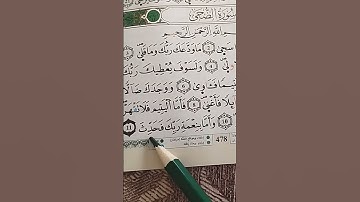 سُورَةُ الضُّحَىٰ
بِسْمِ اللَّهِ الرَّحْمَٰنِ الرَّحِيمِ
سَجَىٰ مَا وَدَّعَكَ رَبُّكَ وَمَا قَلَىٰ
وَلَسَوْفَ يُعْطِيكَ رَبُّكَ
يَتِيمًا فَـَٔاوَىٰ 6 وَوَجَدَكَ ضَالًّا
فَأَغْنَىٰ 8 فَأَمَّا الْيَتِيمَ فَلَا تَقْهَرْ
10 وَأَمَّا بِنِعْمَةِ رَبِّكَ فَحَدِّثْ 11
478